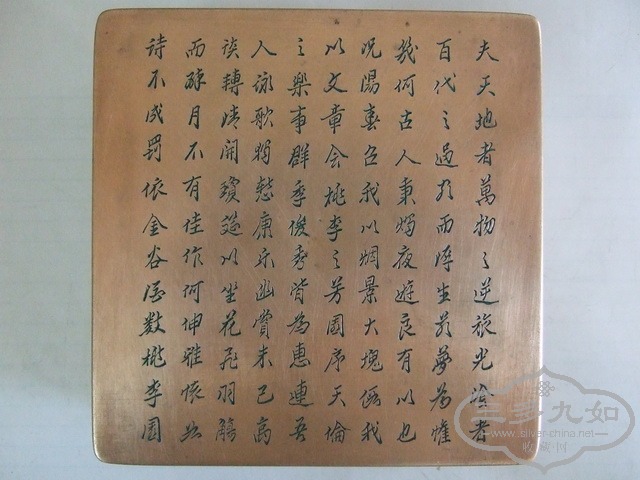 夫天地者萬物之逆旅光陰者
百代之過客而浮生若夢為懽
幾何古人秉燭夜遊良有以也
況陽春召我以烟景大塊假我
以文章會桃李之芳園序天倫
之樂事群季俊秀皆為惠連吾
人詠歌獨慙康樂幽賞未已高
談轉清開瓊筵以坐花飛羽觴
而醉月不有佳作何伸雅懷如
詩不成罰依金谷酒數桃李園
三多九如
www.silver-china.net
收藏网